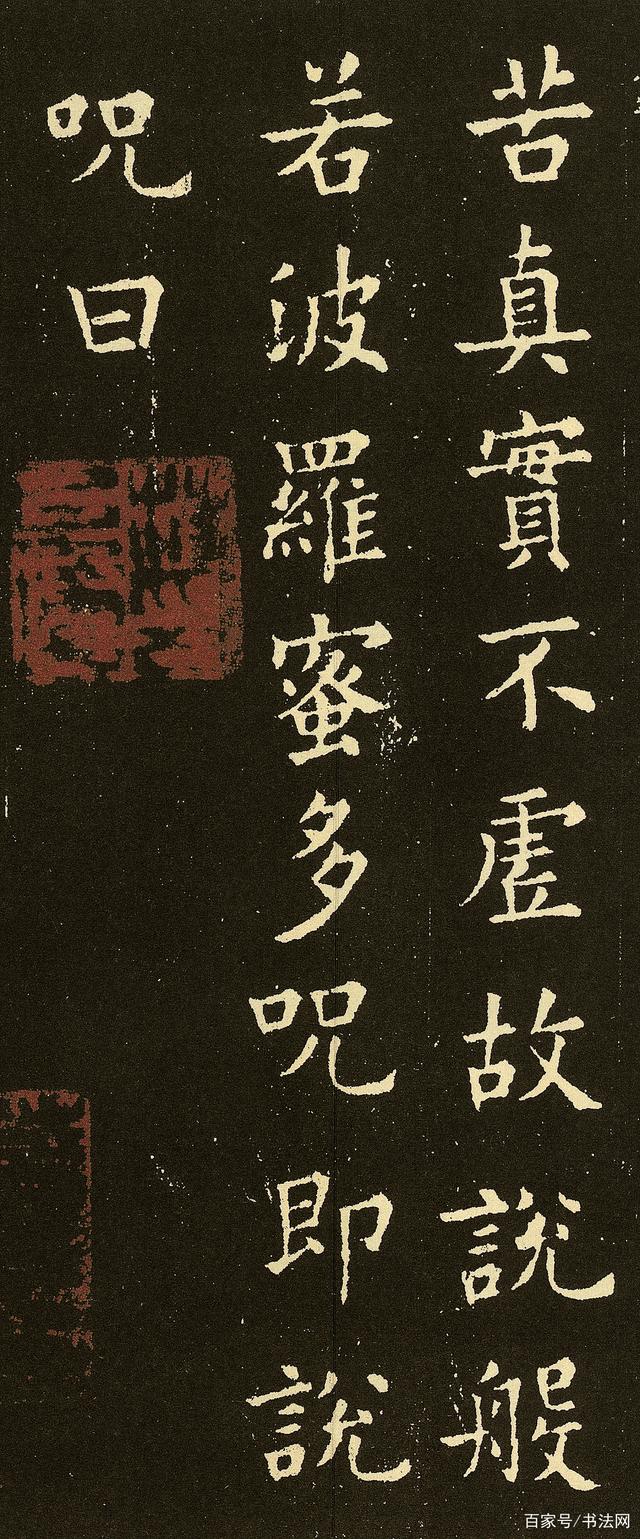 苦真實不虛故說般
若波羅蜜多呪即說
呪曰
百家号/书法网